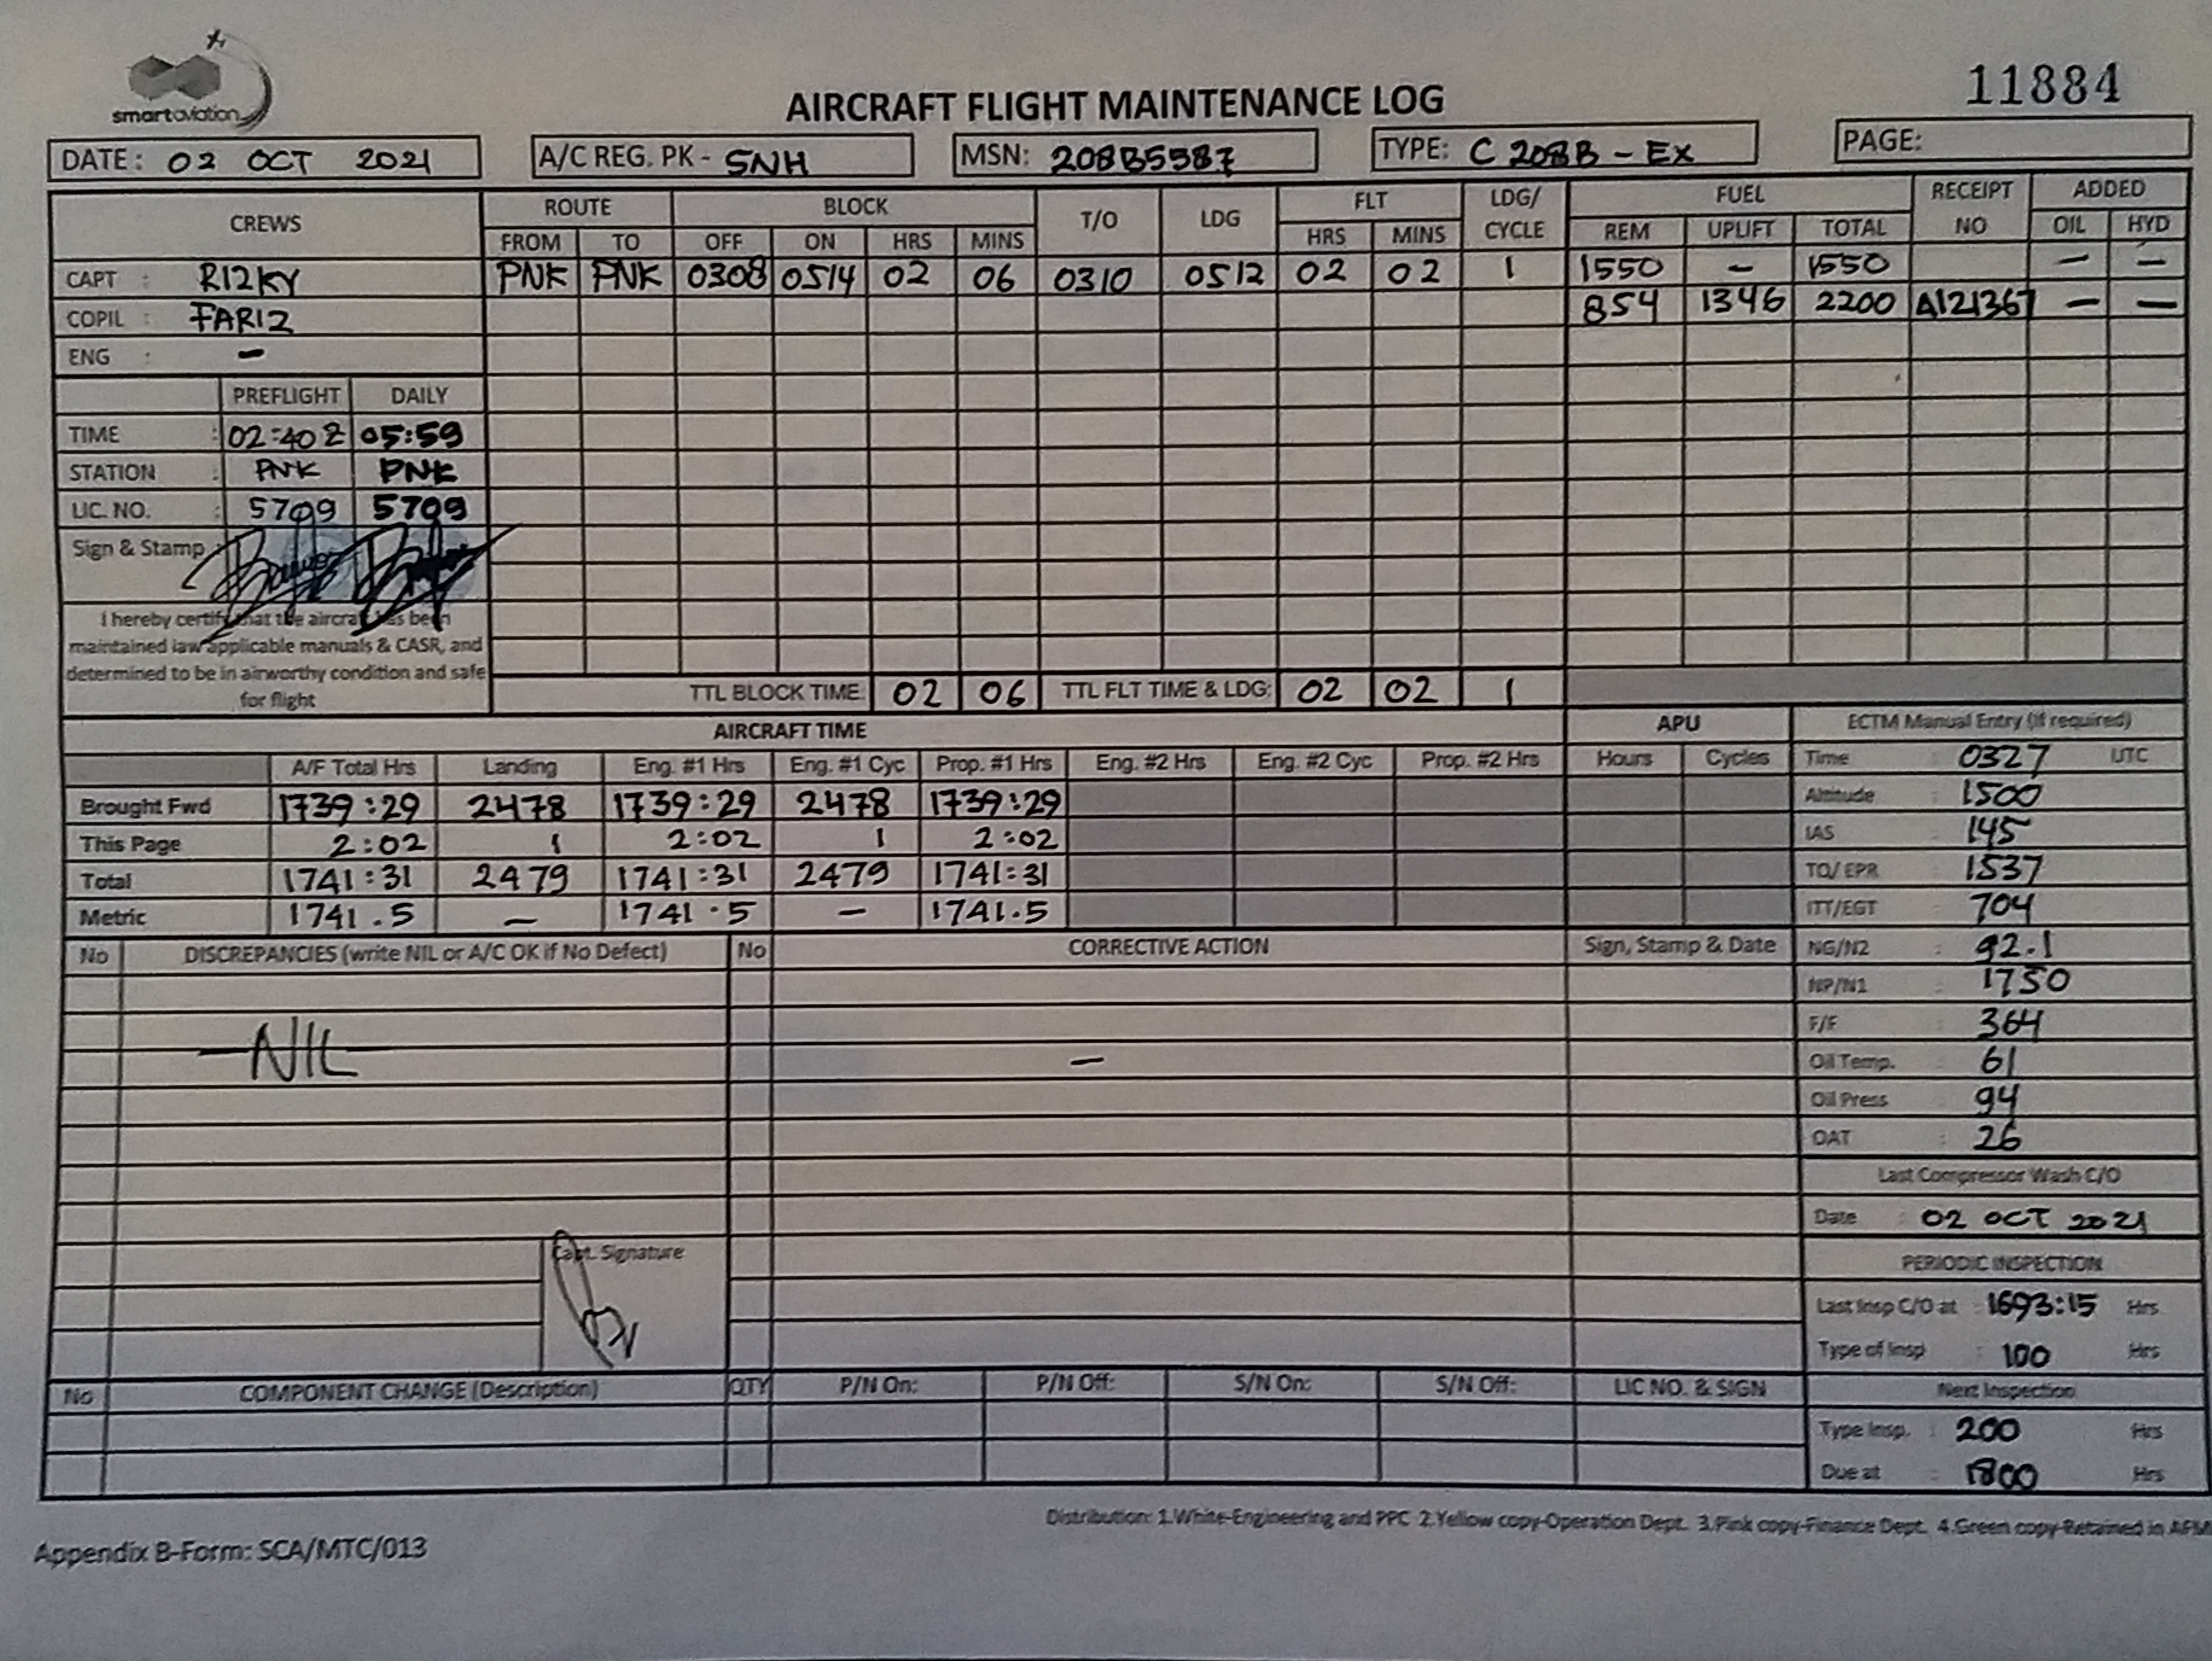 smartaviation
11884
AIRCRAFT FLIGHT MAINTENANCE LOG
DATE: 02 OCT 2021 A/C REG. PK - SNH MSN: 208B5587 TYPE: C 208B - EX PAGE:
CREWS ROUTE BLOCK T/O LDG FLT LDG/CYCLE FUEL RECEIPT NO ADDED
FROM TO OFF ON HRS MINS HRS MINS REM UPLIFT TOTAL OIL HYD
CAPT : RIZKY PNK PNK 0308 0514 02 06 0310 0512 02 02 1 1550 - 1550 - -
COPIL : FARIZ 854 1346 2200 A121367 - -
ENG : -
PREFLIGHT DAILY
TIME : 02:40 Z 05:59
STATION : PNK PNK
LIC. NO. : 5709 5709
Sign & Stamp
I hereby certify that the aircraft has been
maintained iaw applicable manuals & CASR, and
determined to be in airworthy condition and safe
for flight
TTL BLOCK TIME: 02 06 TTL FLT TIME & LDG: 02 02 1
AIRCRAFT TIME APU ECTM Manual Entry (if required)
A/F Total Hrs Landing Eng. #1 Hrs Eng. #1 Cyc Prop. #1 Hrs Eng. #2 Hrs Eng. #2 Cyc Prop. #2 Hrs Hours Cycles Time 0327 UTC
Brought Fwd 1739:29 2478 1739:29 2478 1739:29 Altitude : 1500
This Page 2:02 1 2:02 1 2:02 IAS : 145
Total 1741:31 2479 1741:31 2479 1741:31 TQ/EPR : 1537
Metric 1741.5 - 1741.5 - 1741.5 ITT/EGT : 704
No DISCREPANCIES (write NIL or A/C OK if No Defect) No CORRECTIVE ACTION Sign, Stamp & Date NG/N2 : 92.1
NP/N1 : 1750
F/F : 364
NIL - Oil Temp. : 61
Oil Press : 94
OAT : 26
Last Compressor Wash C/O
Date : 02 OCT 2021
Capt. Signature
PERIODIC INSPECTION
Last Insp C/O at : 1693:15 Hrs
Type of Insp : 100 Hrs
No COMPONENT CHANGE (Description) QTY P/N On: P/N Off: S/N On: S/N Off: LIC NO. & SIGN Next Inspection
Type Insp. : 200 Hrs
Due at : 1800 Hrs
Distribution: 1.White-Engineering and PPC 2.Yellow copy-Operation Dept. 3.Pink copy-Finance Dept. 4.Green copy-Retained in AFM
Appendix B-Form: SCA/MTC/013